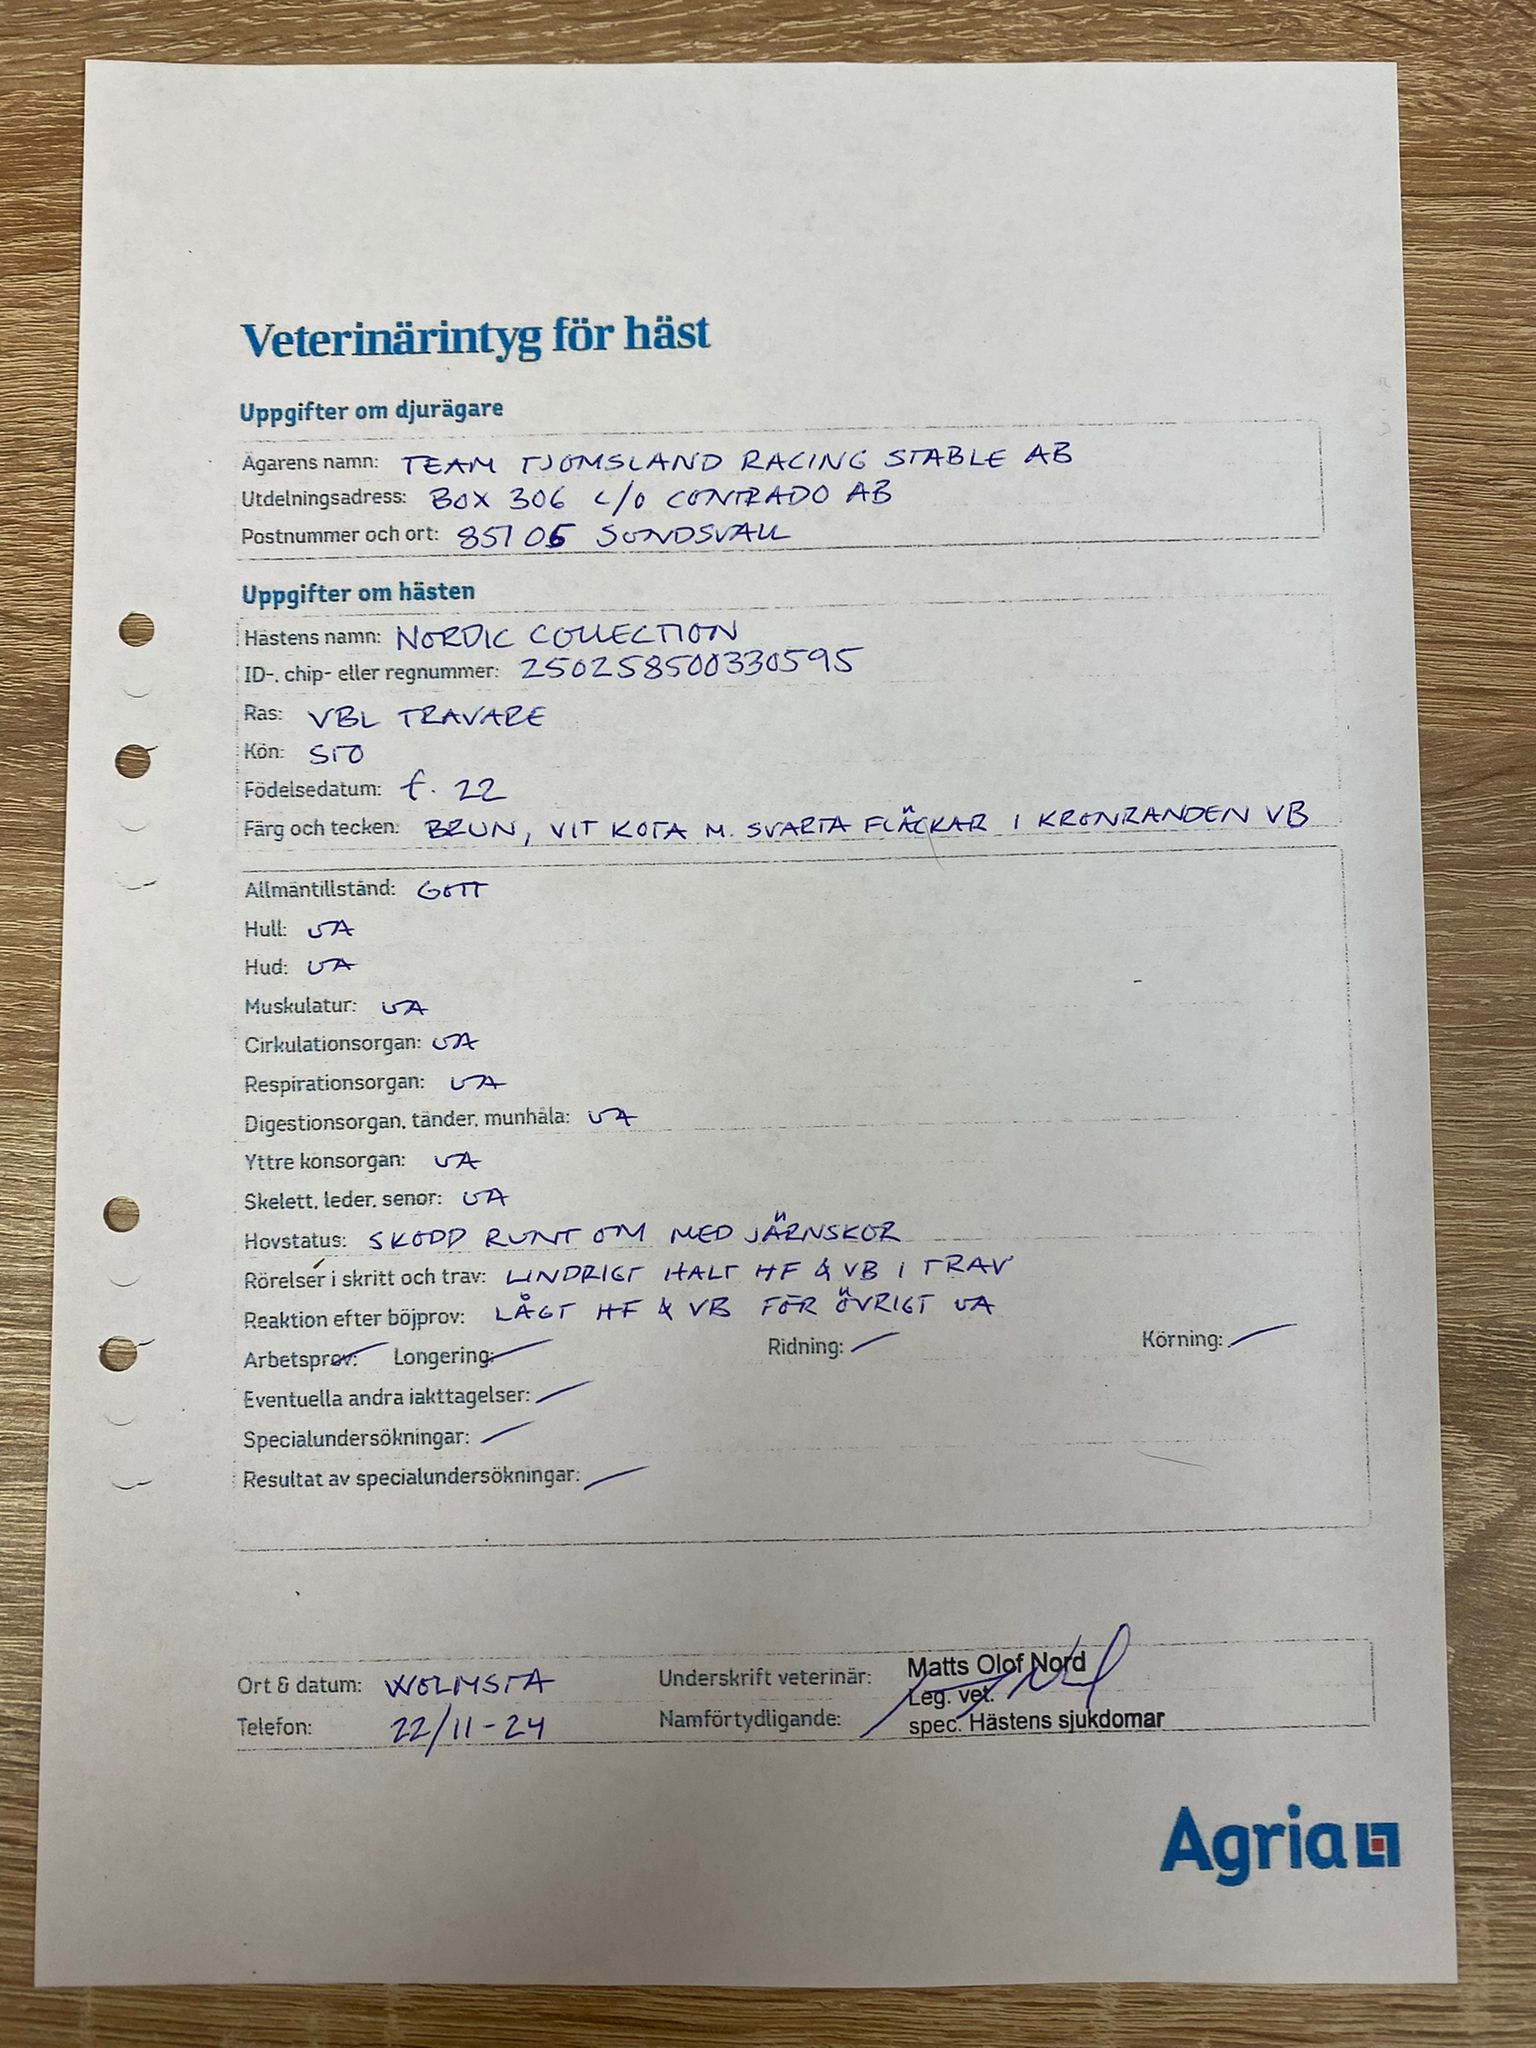 Veterinärintyg för häst
Uppgifter om djurägare
Ägarens namn: TEAM TJOMSLAND RACING STABLE AB
Utdelningsadress: BOX 306 c/o CONTRADO AB
Postnummer och ort: 85105 SUNDSVALL
Uppgifter om hästen
Hästens namn: NORDIC COLLECTION
ID-, chip- eller regnummer: 250258500330595
Ras: VBL TRAVARE
Kön: STO
Födelsedatum: f. 22
Färg och tecken: BRUN, VIT KOTA M. SVARTA FLÄCKAR I KRONRANDEN VB
Allmäntillstånd: GOTT
Hull: UA
Hud: UA
Muskulatur: UA
Cirkulationsorgan: UA
Respirationsorgan: UA
Digestionsorgan, tänder, munhåla: UA
Yttre könsorgan: UA
Skelett, leder, senor: UA
Hovstatus: SKODD RUNT OM MED JÄRNSKOR
Rörelser i skritt och trav: LINDRIGT HALT HF & VB I TRAV
Reaktion efter böjprov: LÅGT HF & VB FÖR ÖVRIGT UA
Arbetsprov: Longering: Ridning: Körning:
Eventuella andra iakttagelser:
Specialundersökningar:
Resultat av specialundersökningar:
Ort & datum: WOLMSTA Underskrift veterinär: Matts Olof Nord
Leg. vet.
Telefon: 22/11-24 Namförtydligande: spec. Hästens sjukdomar
Agria